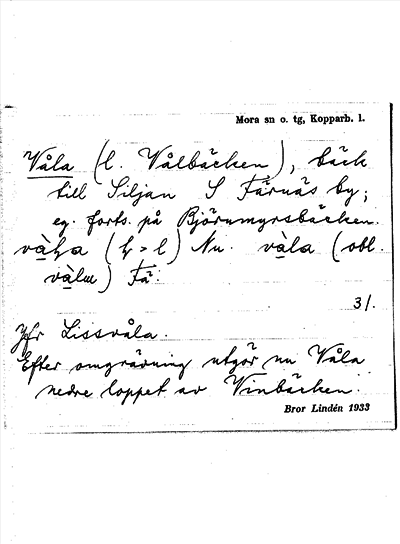 Mora sn o. tg, Kopparb. l.
Våla (l. Vålbäcken), bäck
till Siljan S Färnäs by;
eg. forts. på Björnmyrsbäcken.
(ɫ > l) Nu. vàla (obl.
vàlu) Fä.
3/.
Jfr Lissvåla.
Efter omgrävning utgör nu Våla
nedre loppet av Vinbäcken.
Bror Lindén 1933